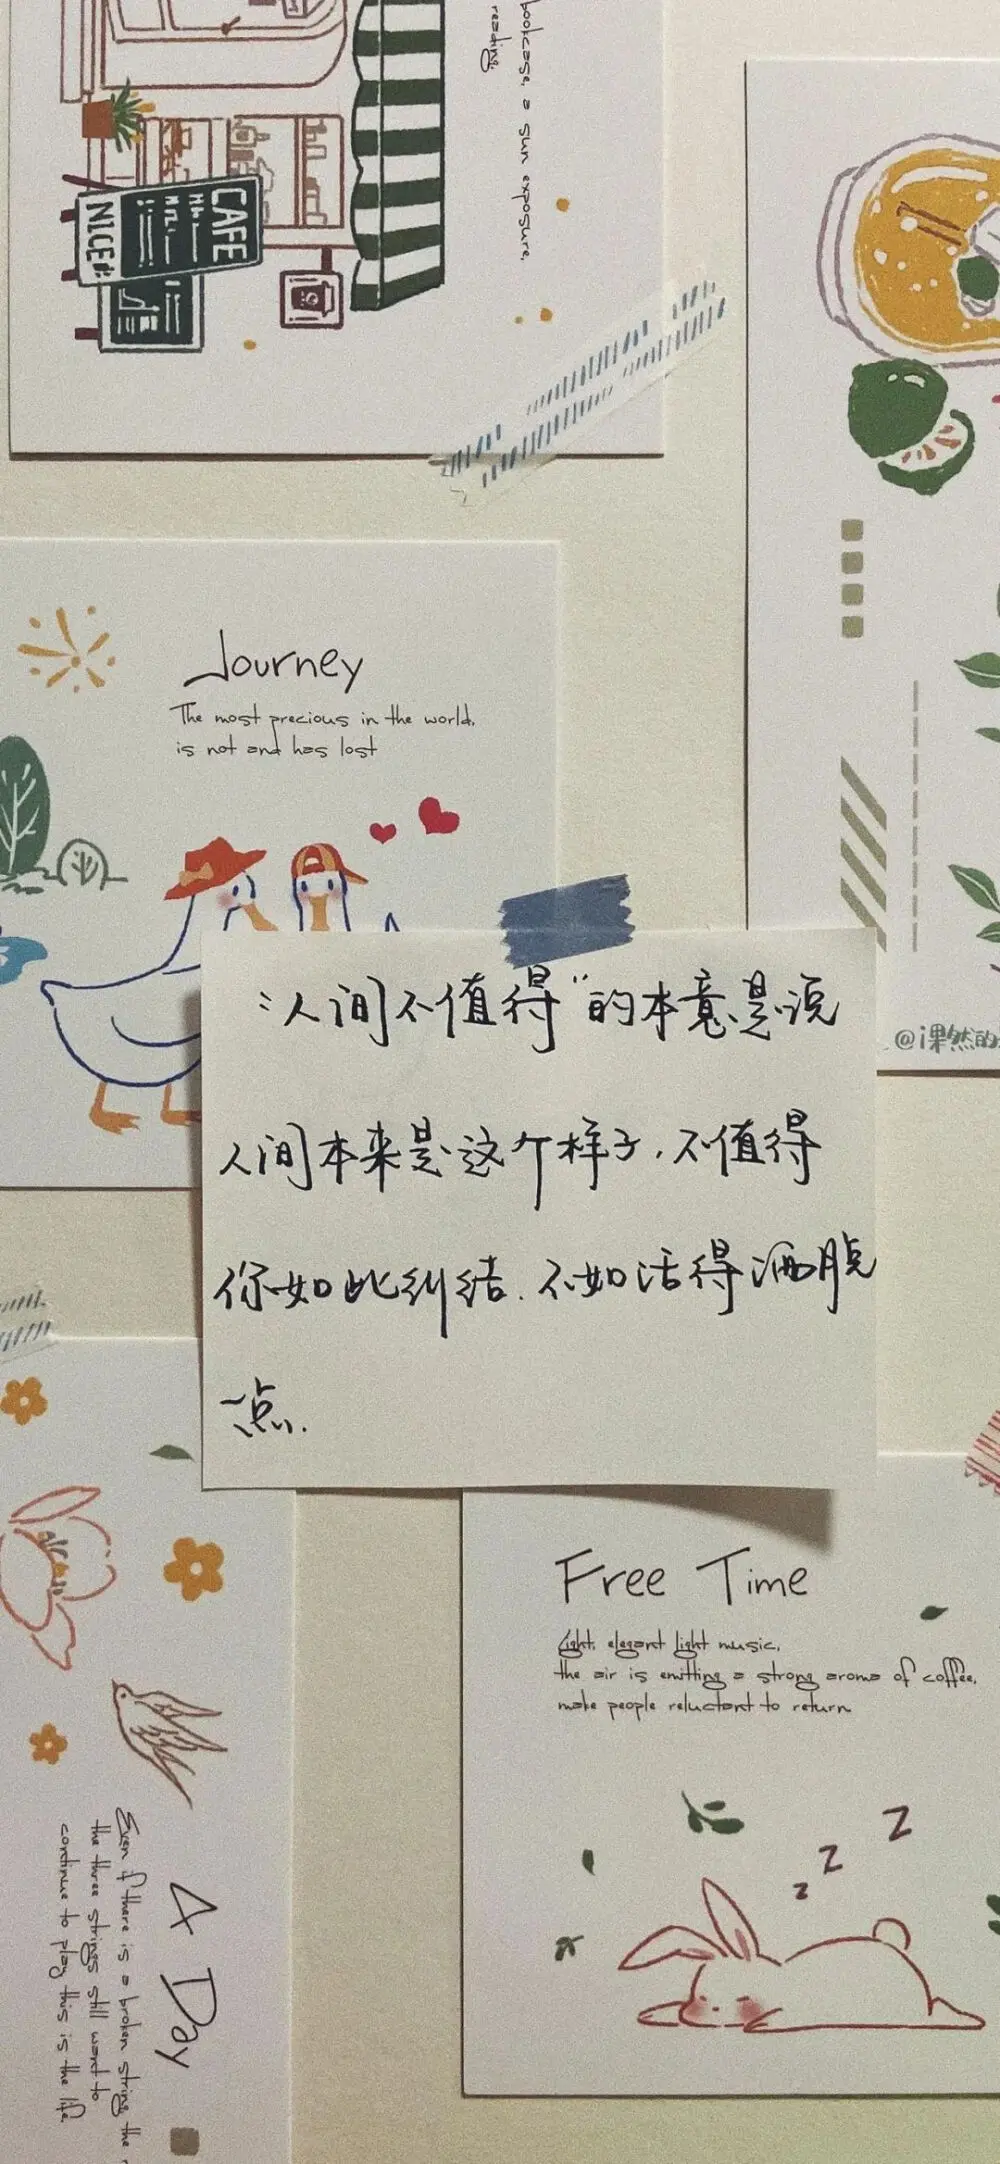 bookcase, a sun exposure,
reading.
CAFE
NICE
Journey
The most precious in the world,
is not and has lost
@i果然的
“人间不值得”的本意是说
人间本来是这个样子,不值得
你如此纠结.不如活得洒脱
一点.
Free Time
Light, elegant light music,
the air is emitting a strong aroma of coffee,
make people reluctant to return
z z z
A Day
Even if there is a broken string, the
the three strings still want to
continue to play, this is the life.